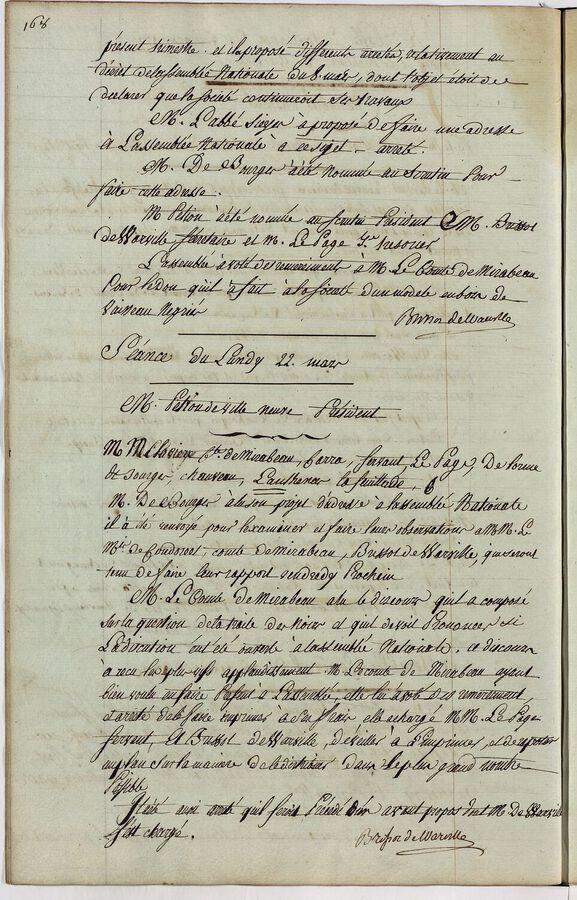 168
présent trimestre. et il a proposé différents arretés, relativement au
décret de l'assemblée Nationale du 8. mars, dont l'objet étoit de
declarer que la Société continueroit ses travaux
M. L'abbé Sieyes à proposé de faire une adresse
à L'assemblée Nationale à ce sujet - arreté.
M. De Bourges a été nommé au Scrutin Pour
faire cette adresse.
M Petion à été nommé au scrutin Président & M. Brissot
de Warville Sécretaire et M. Le Page Trésorier
L'assemblée à voté des remerciments à M. Le Comte de Mirabeau
Pour le don qu'il a fait à la société d'un modele en bois de
Vaisseau Negrier
Brissot de Warville
Séance du Lundy 22. mars
M. Petion de Villeneuve Président
M M Claviere, Cte de Mirabeau, Carra, Servant, Le Page, De
Bourges, chauveau, Lanthenas la feuillade,
M. De Bourges à lu son projet d'adresse a l'assemblée Nationale
il à été renvoyé pour l'examiner et faire leurs observations a MM. Le
Mis de Condorcet, comte de Mirabeau, Brissot de Warville, qui seront
tenu de faire leur rapport vendredy Prochain
M. Le Comte de Mirabeau a lu le discours qu'il a composé
Sur la question de la traite des Noirs et qu'il devoit Prononcer Si
La discution eut été ouverte a l'assemblée Nationale. ce discours
à recu les plus vifs applaudissements. M. Le comte de Mirabeau ayant
bien voulu en faire Présent a L'assemblée, elle lui à voté des remerciments,
et arreté de le faire imprimer à ses frais elle a chargé MM. Le Page
Servant, Et Brissot de Warville, de veiller à L'Imprimer, et de
un plan Sur la maniere de le distribuer dans le plus grand nombre
Possible
Il à été aussi arreté qu'il seroit Précédé d'un avant propos dont M. De Warville
s'est chargé.
Brissot de Warville